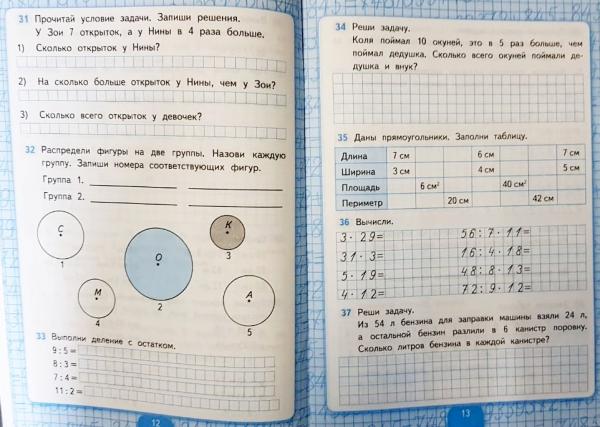 31 Прочитай условие задачи. Запиши решения.
У Зои 7 открыток, а у Нины в 4 раза больше.
1) Сколько открыток у Нины?
2) На сколько больше открыток у Нины, чем у Зои?
3) Сколько всего открыток у девочек?
32 Распредели фигуры на две группы. Назови каждую
группу. Запиши номера соответствующих фигур.
Группа 1.
Группа 2.
С
1
О
2
К
3
М
4
А
5
33 Выполни деление с остатком.
9 : 5 =
8 : 3 =
7 : 4 =
11 : 2 =
12
34 Реши задачу.
Коля поймал 10 окуней, это в 5 раз больше, чем
поймал дедушка. Сколько всего окуней поймали де-
душка и внук?
35 Даны прямоугольники. Заполни таблицу.
Длина 7 см 6 см 7 см
Ширина 3 см 4 см 5 см
Площадь 6 см² 40 см²
Периметр 20 см 42 см
36 Вычисли.
3 · 29= 56 : 7 · 11=
31 · 3= 16 : 4 · 18=
5 · 19= 48 : 8 · 13=
4 · 12= 72 : 9 · 12=
37 Реши задачу.
Из 54 л бензина для заправки машины взяли 24 л,
а остальной бензин разлили в 6 канистр поровну.
Сколько литров бензина в каждой канистре?
13